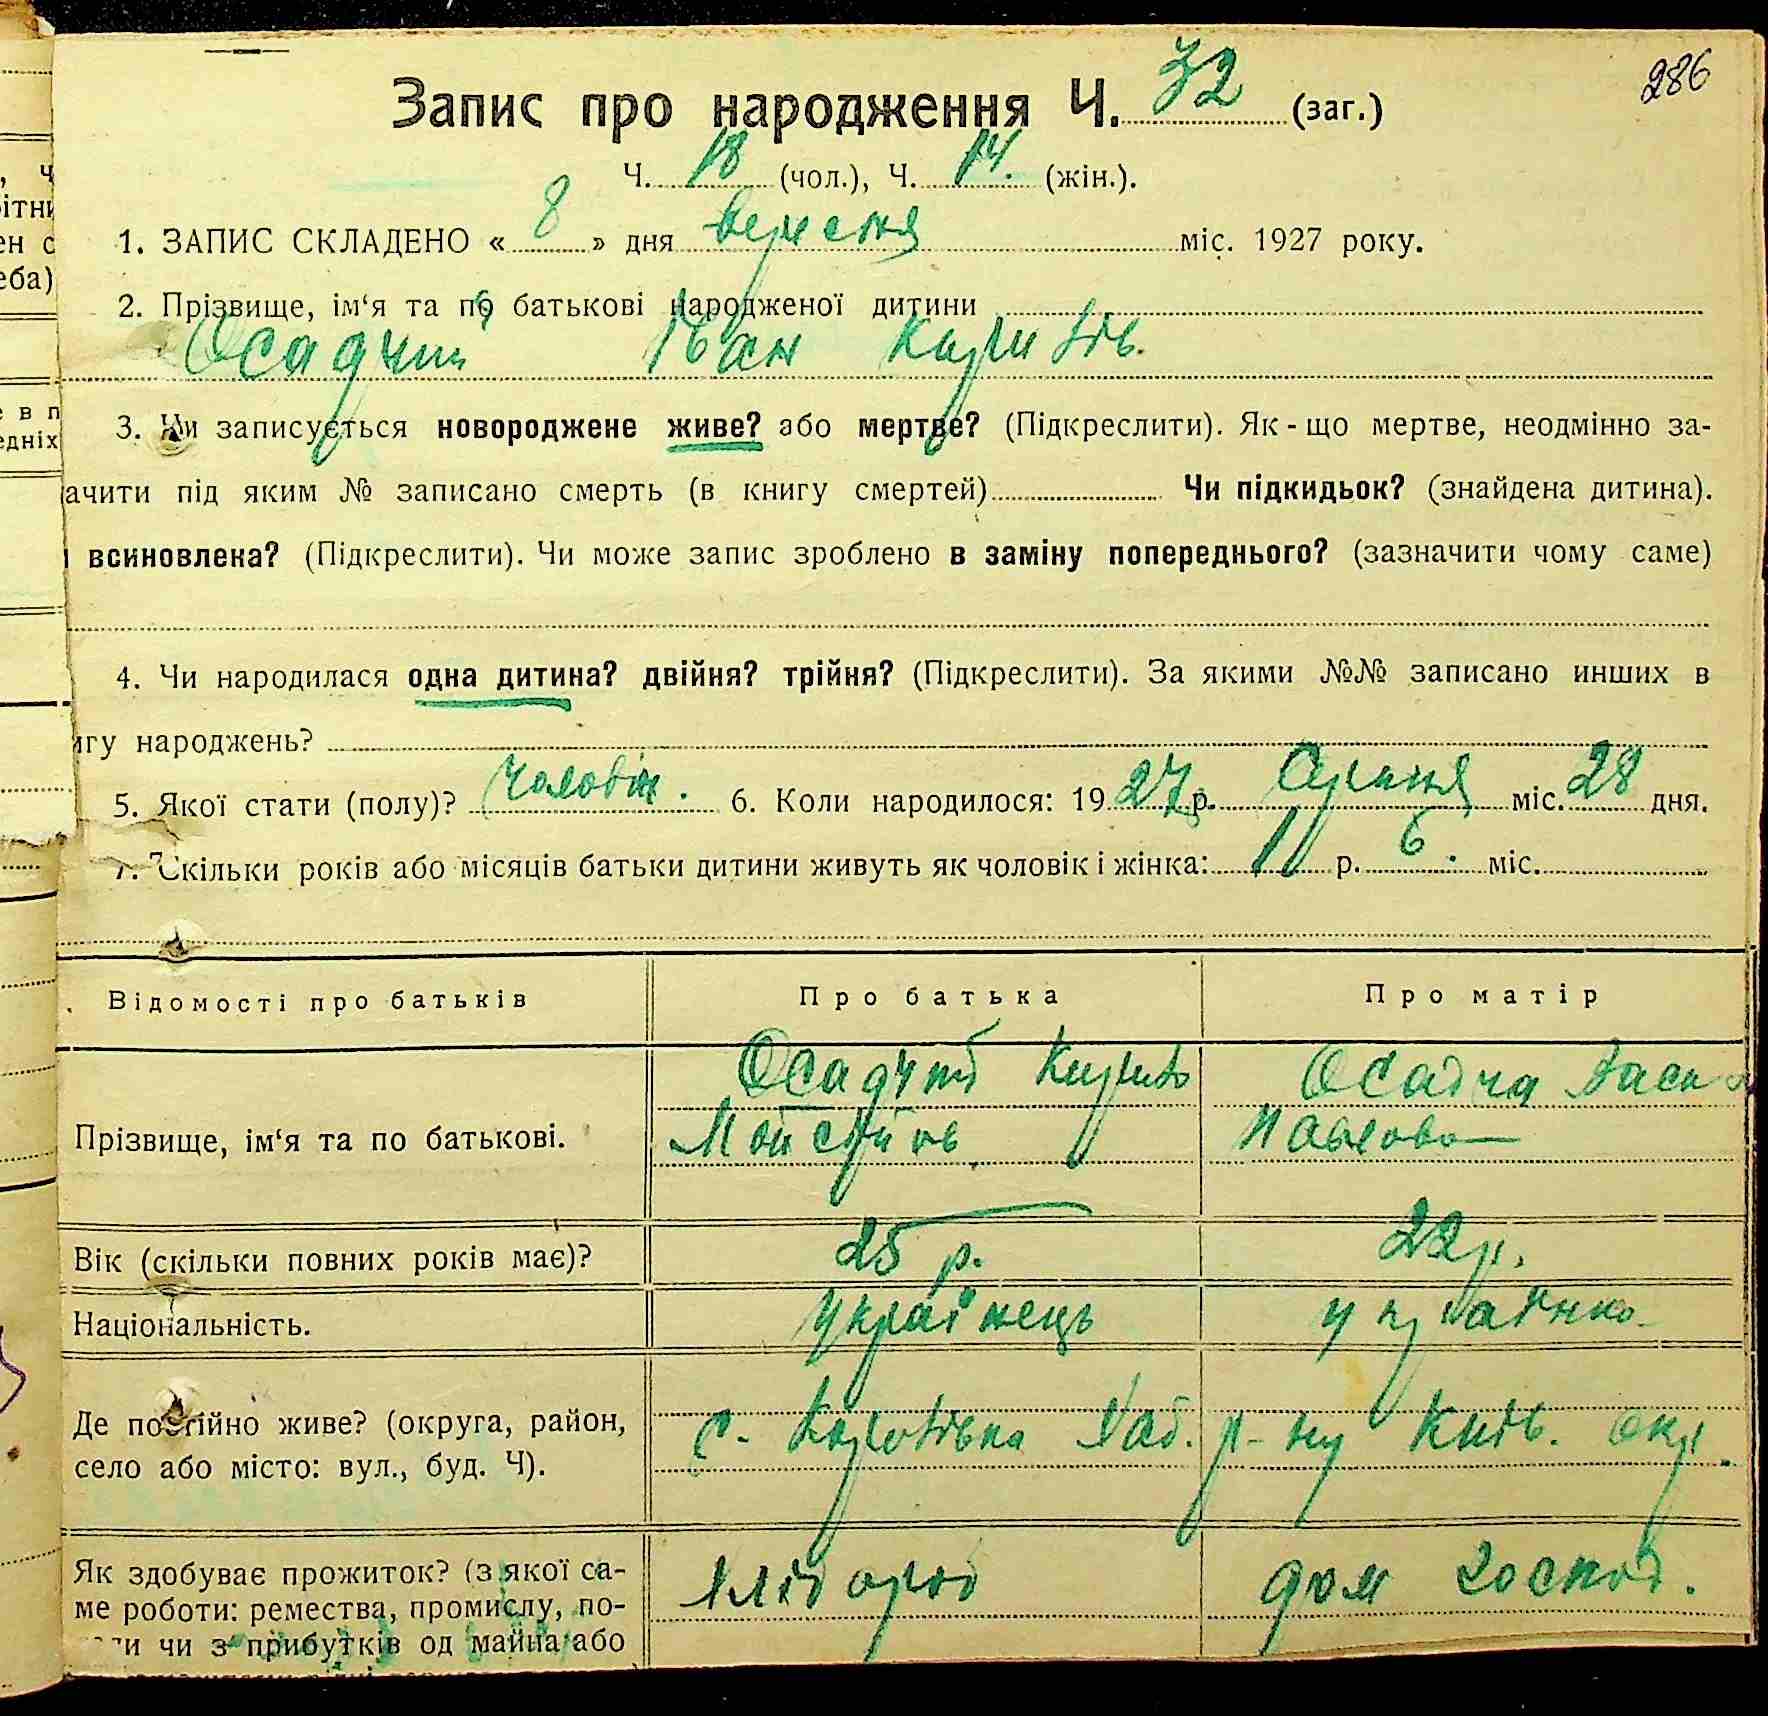 286
Запис про народження Ч. 32 (заг.)
Ч. 18 (чол.), Ч. 14. (жін.).
1. ЗАПИС СКЛАДЕНО « 8 » дня вересня міс. 1927 року.
2. Прізвище, ім‘я та по батькові народженої дитини
Осадчий Іван
3. Чи записується новороджене живе? або мертве? (Підкреслити). Як-що мертве, неодмінно за-
ачити під яким № записано смерть (в книгу смертей) Чи підкидьок? (знайдена дитина).
всиновлена? (Підкреслити). Чи може запис зроблено в заміну попереднього? (зазначити чому саме)
4. Чи народилася одна дитина? двійня? трійня? (Підкреслити). За якими №№ записано инших в
игу народжень?
5. Якої стати (полу)? чоловіч. 6. Коли народилося: 19 27 р. Серпня міс. 28 дня.
7. Скільки років або місяців батьки дитини живуть як чоловік і жінка: 1 р. 6 міс.
Відомості про батьків Про батька Про матір
Осадчий Кирило Осадча
Прізвище, ім‘я та по батькові. Мойсейов Павлова
Вік (скільки повних років має)? 25 р. 22 р.
Національність. українець українка
Де постійно живе? (округа, район, с. Хаб. р-ну Київ. окр.
село або місто: вул., буд. Ч).
Як здобуває прожиток? (з якої са- хлібороб дом господ.
ме роботи: ремества, промислу, по-
ти чи з прибутків од майна або